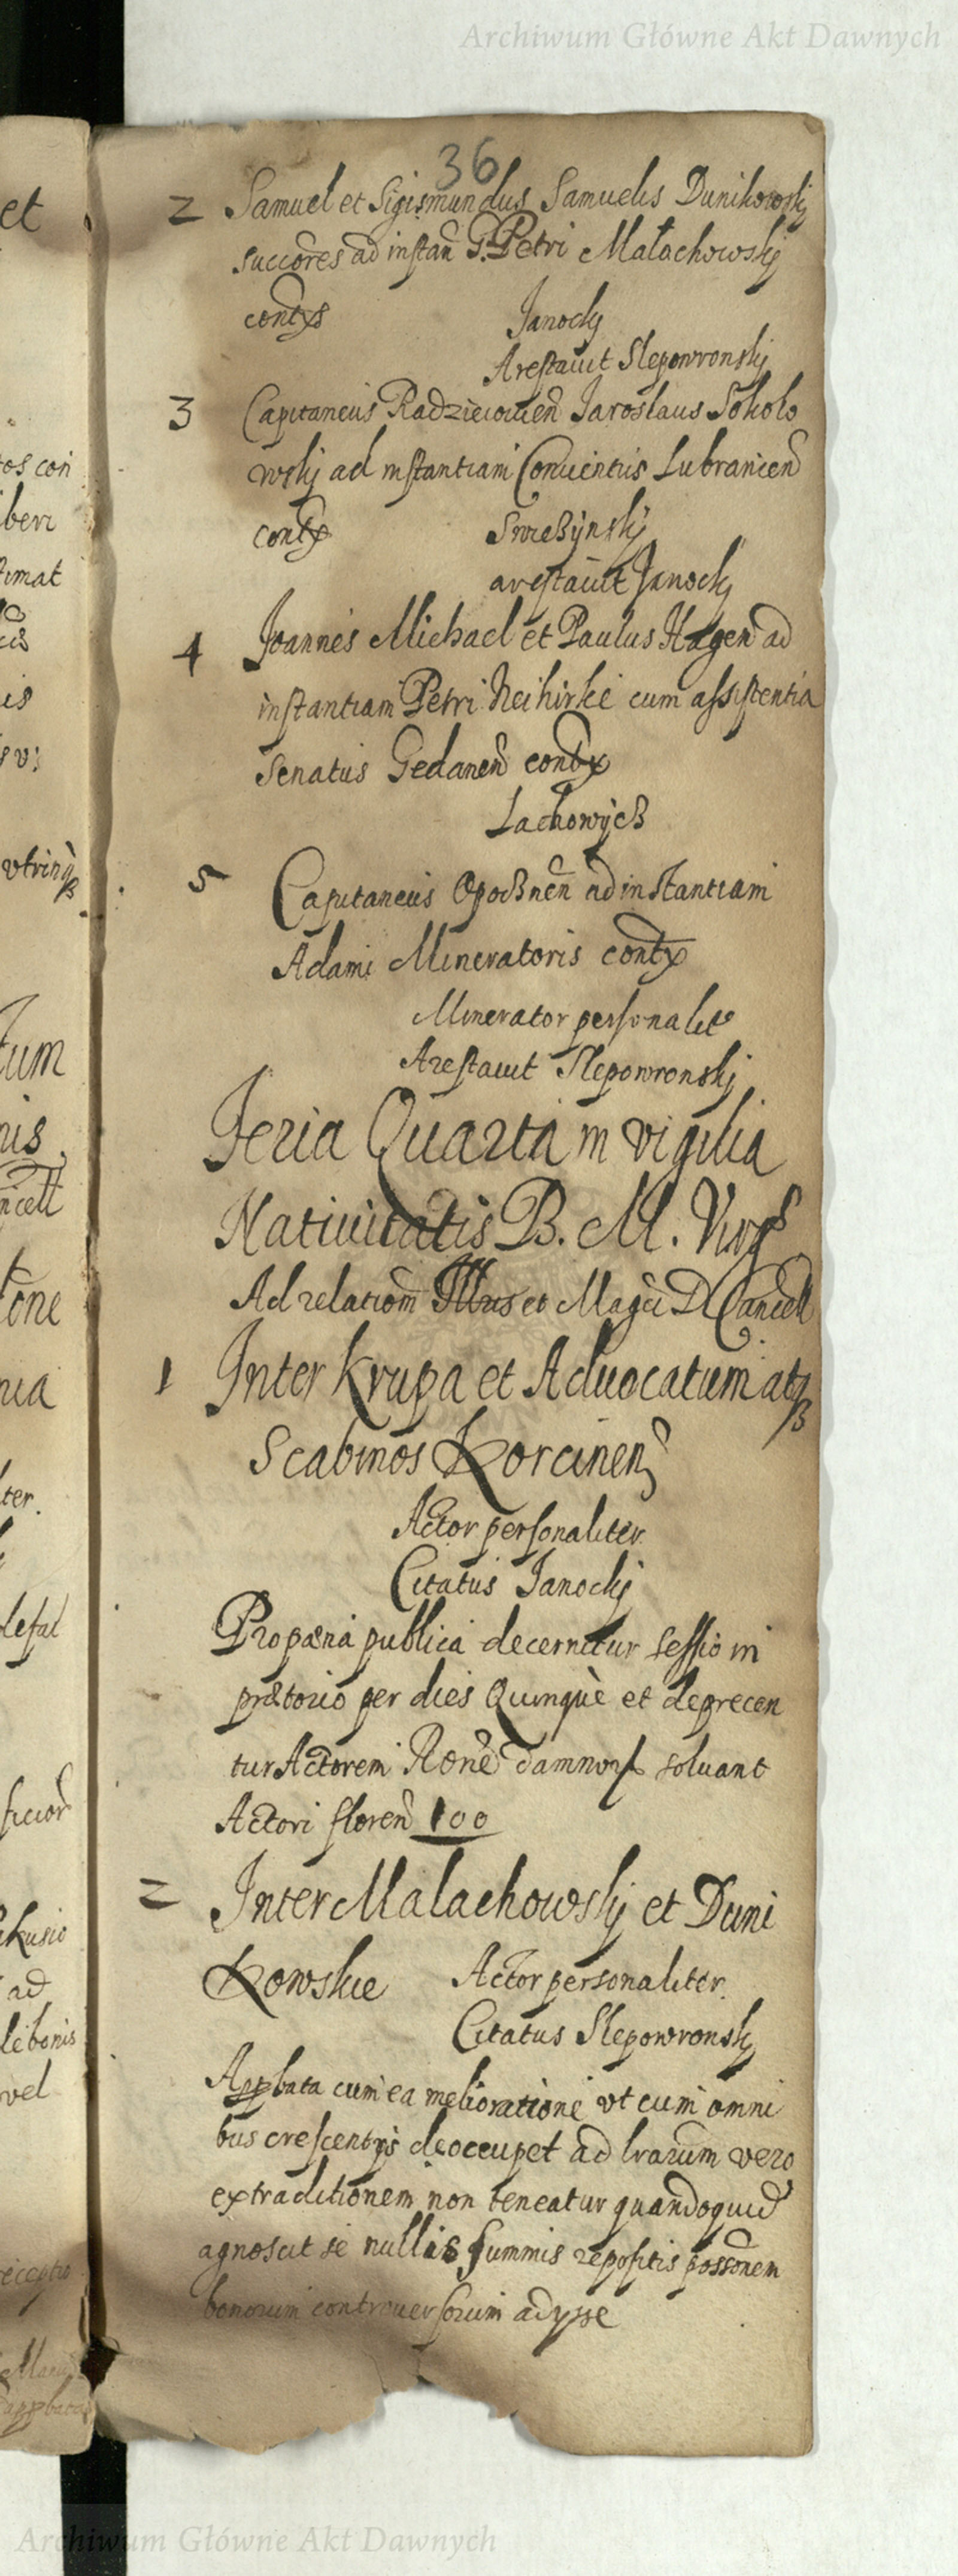 Archiwum Główne Akt Dawnych
36
2 Samuel et Sigismundus Samuelis Dunikowskj
succōres ad instan̄ G. Petri Małachowskj
contx̄s
Janockj
Arestauit Slepowronskj
3 Capitaneus Radzieiowien̄ Jaroslaus Sokolo
wskj ad instantiam Conuentus Lubranien̄
contx̄
arestauit Janockj
4 Joannes Michael et Paulus Hagen ad
instantiam Petri Neihirke cum assistentia
Senatus Gedanen̄ contx̄
Lachowijcß
5 Capitaneus Opoßnen̄ ad instantiam
Adami Mineratoris contx̄
Minerator personalit
Arestauit Slepowronskj
Feria Quarta in vigilia
Natiuitatis B. M. Virgs
Ad relationem Illris et Magci D Cancell
1 Inter Krupa et Aduocatum atqß
Scabinos Korcinen
Actor personaliter
Citatus Janockj
Pro pæna publica decernitur sessio in
prætorio per dies Quinque et deprecen
tur Actorem Rōne damnor soluant
Actori floren̄ 100
2 Inter Małachowskj et Duni
kowskie Actor personaliter
Citatus Slepowronskj
Appbata cum ea melioratione vt cum omni
bus crescentijs deoccupet ad lrarum vero
extraditionem non teneatur quandoquid
agnoscit se nullis summis repositis possōnem
bonorum controuersorum adysse
et
beri
timat
is
vtrinqß
tum
nis
ncell
one
nia
ter.
ad
vel
Archiwum Główne Akt Dawnych